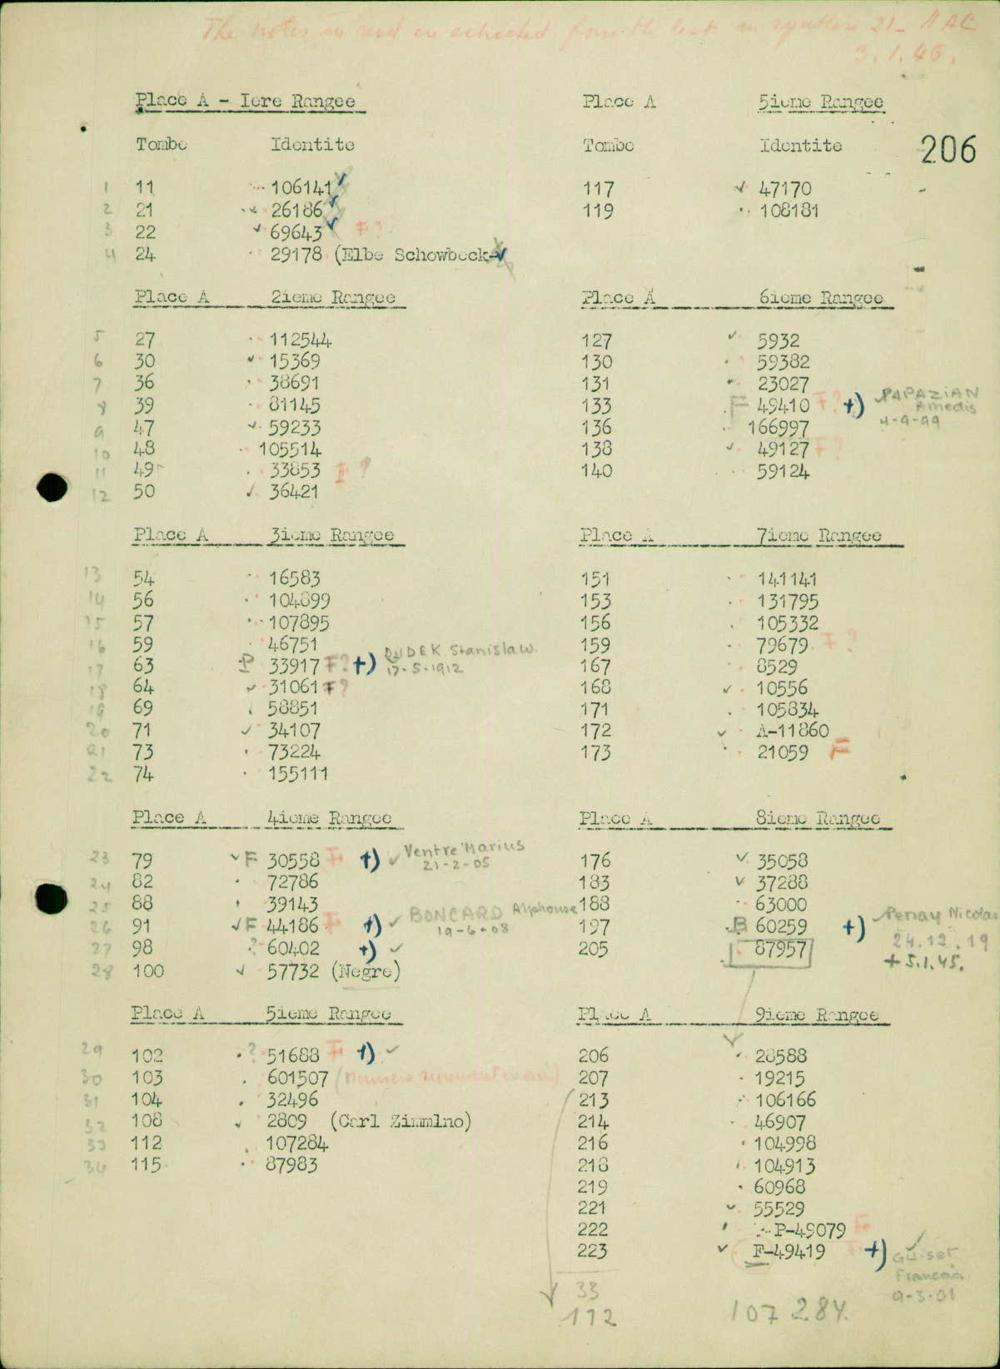 The notes in red
3.1.46.
206
Place A - Iere Rangee
Tombe Identite
1 11 106141
2 21 26186
3 22 69643 F?
4 24 29178 (Elbe Schowbeck-
Place A 2ieme Rangee
5 27 112544
6 30 15369
7 36 38691
8 39 81145
9 47 59233
10 48 105514
11 49 33853 F?
12 50 36421
Place A 3ieme Rangee
13 54 16583
14 56 104899
15 57 107895
16 59 46751
17 63 P 33917 F? +) DUDEK Stanislaw
17-5-1912
18 64 31061 F?
19 69 58851
20 71 34107
21 73 73224
22 74 155111
Place A 4ieme Rangee
23 79 F 30558 F +) Ventre Marius
21-2-05
24 82 72786
25 88 39143
26 91 F 44186 F +) BONCARD Alphonse
19-6-08
27 98 ? 60402 +)
28 100 57732 (Negre)
Place A 5ieme Rangee
29 102 ? 51688 F +)
30 103 601507
31 104 32496
32 108 2809 (Carl Zimmlno)
33 112 107284
34 115 87983
Place A 5ieme Rangee
Tombe Identite
117 47170
119 108181
Place A 6ieme Rangee
127 5932
130 59382
131 23027
133 F 49410 F? +) PAPAZIAN
Amedis
4-9-99
136 166997
138 49127 F?
140 59124
Place A 7ieme Rangee
151 141141
153 131795
156 105332
159 79679 F?
167 8529
168 10556
171 105834
172 A-11860
173 21059 F
Place A 8ieme Rangee
176 35058
183 37288
188 63000
197 B 60259 +) Penay Nicolas
24.12.19
+ 5.1.45.
205 87957
Place A 9ieme Rangee
206 28588
207 19215
213 106166
214 46907
216 104998
218 104913
219 60968
221 55529
222 P-49079 F
223 F-49419 +)
Francois
9-3-01
33
112 107 284.